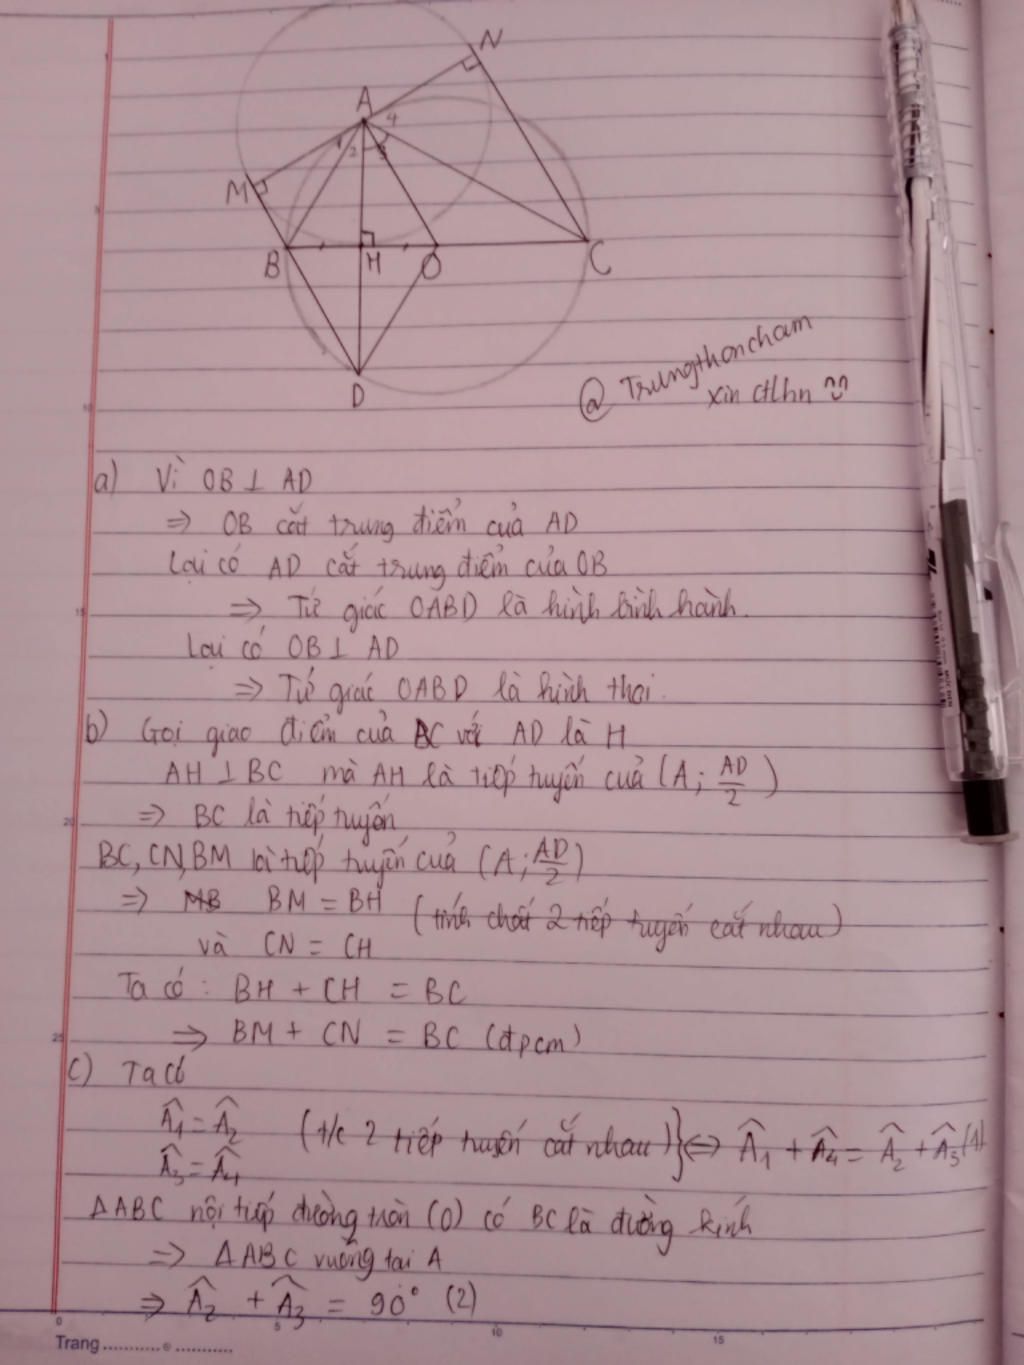 N
A
4
1
2
3
M
B
H
O
C
D
@ Trungthoncham
xin ctlhn
a) Vì OB ⊥ AD
⇒ OB cắt trung điểm của AD
Lại có AD cắt trung điểm của OB
⇒ Tứ giác OABD là hình bình hành.
Lại có OB ⊥ AD
⇒ Tứ giác OABD là hình thoi.
b) Gọi giao điểm của BC với AD là H
AH ⊥ BC mà AH là tiếp tuyến của (A; AD/2)
⇒ BC là tiếp tuyến
BC, CN, BM là tiếp tuyến của (A; AD/2)
⇒ MB BM = BH (tính chất 2 tiếp tuyến cắt nhau)
và CN = CH
Ta có: BH + CH = BC
⇒ BM + CN = BC (đpcm)
c) Ta có
Â1 = Â2 (t/c 2 tiếp tuyến cắt nhau)} ⇔ Â1 + Â4 = Â2 + Â3 (1)
Â3 = Â4
ΔABC nội tiếp đường tròn (O) có BC là đường kính
⇒ ΔABC vuông tại A
⇒ Â2 + Â3 = 90° (2)
Trang
5
10
15
20
25
0
5
10
15